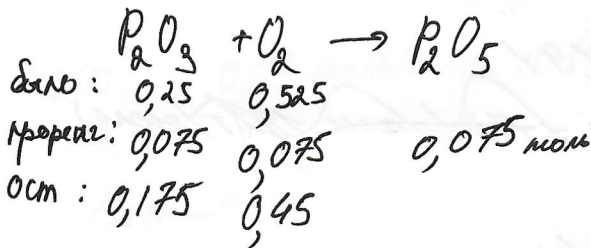 P₂O₃ + O₂ → P₂O₅
было: 0,25 0,525
прореаг: 0,075 0,075 0,075 моль
ост: 0,175 0,45